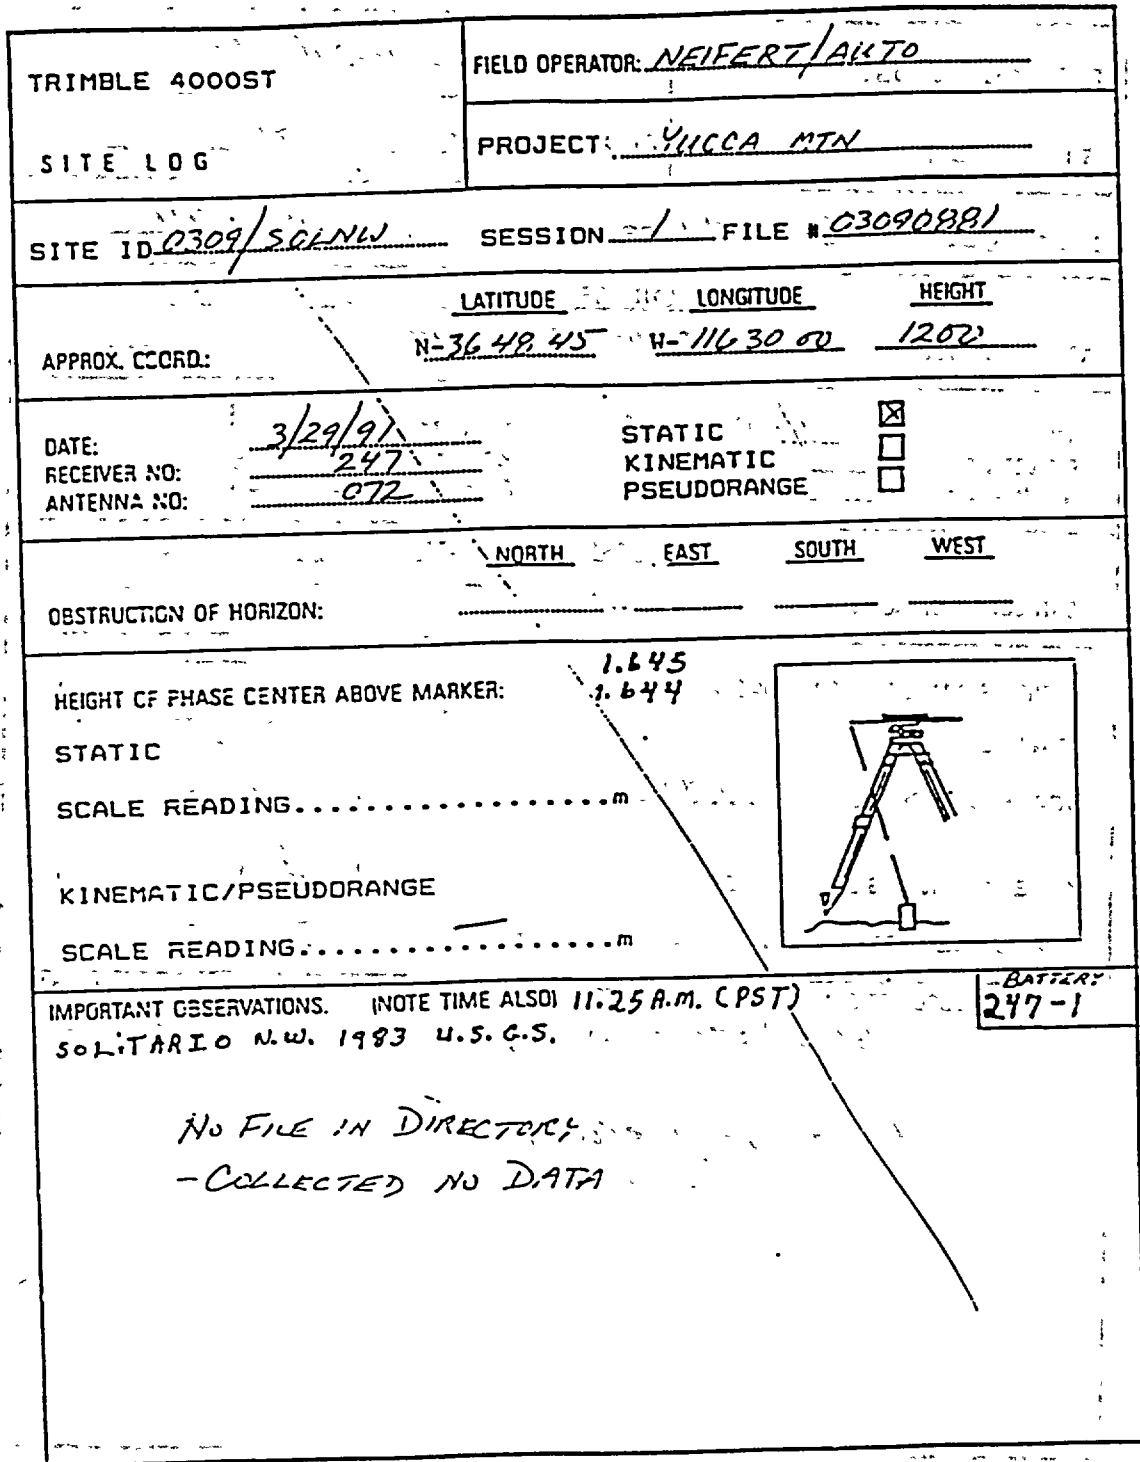 TRIMBLE 4000ST
SITE LOG
FIELD OPERATOR: NEIFERT/AUTO
PROJECT: YUCCA MTN
SITE ID 0309/SOLNW SESSION 1 FILE # 03090881
LATITUDE LONGITUDE HEIGHT
APPROX. COORD.: N-36 49. 45 W-116 30 00 1200
DATE: 3/29/91
RECEIVER NO: 247
ANTENNA NO: 072
STATIC ☒
KINEMATIC ☐
PSEUDORANGE ☐
NORTH EAST SOUTH WEST
OBSTRUCTION OF HORIZON:
1.645
HEIGHT OF PHASE CENTER ABOVE MARKER: 1.644
STATIC
SCALE READING..................m
KINEMATIC/PSEUDORANGE
SCALE READING..................m
BATTERY
247-1
IMPORTANT OBSERVATIONS. (NOTE TIME ALSO) 11:25 A.M. (PST)
SOLITARIO N.W. 1983 U.S.G.S.
NO FILE IN DIRECTORY
- COLLECTED NO DATA